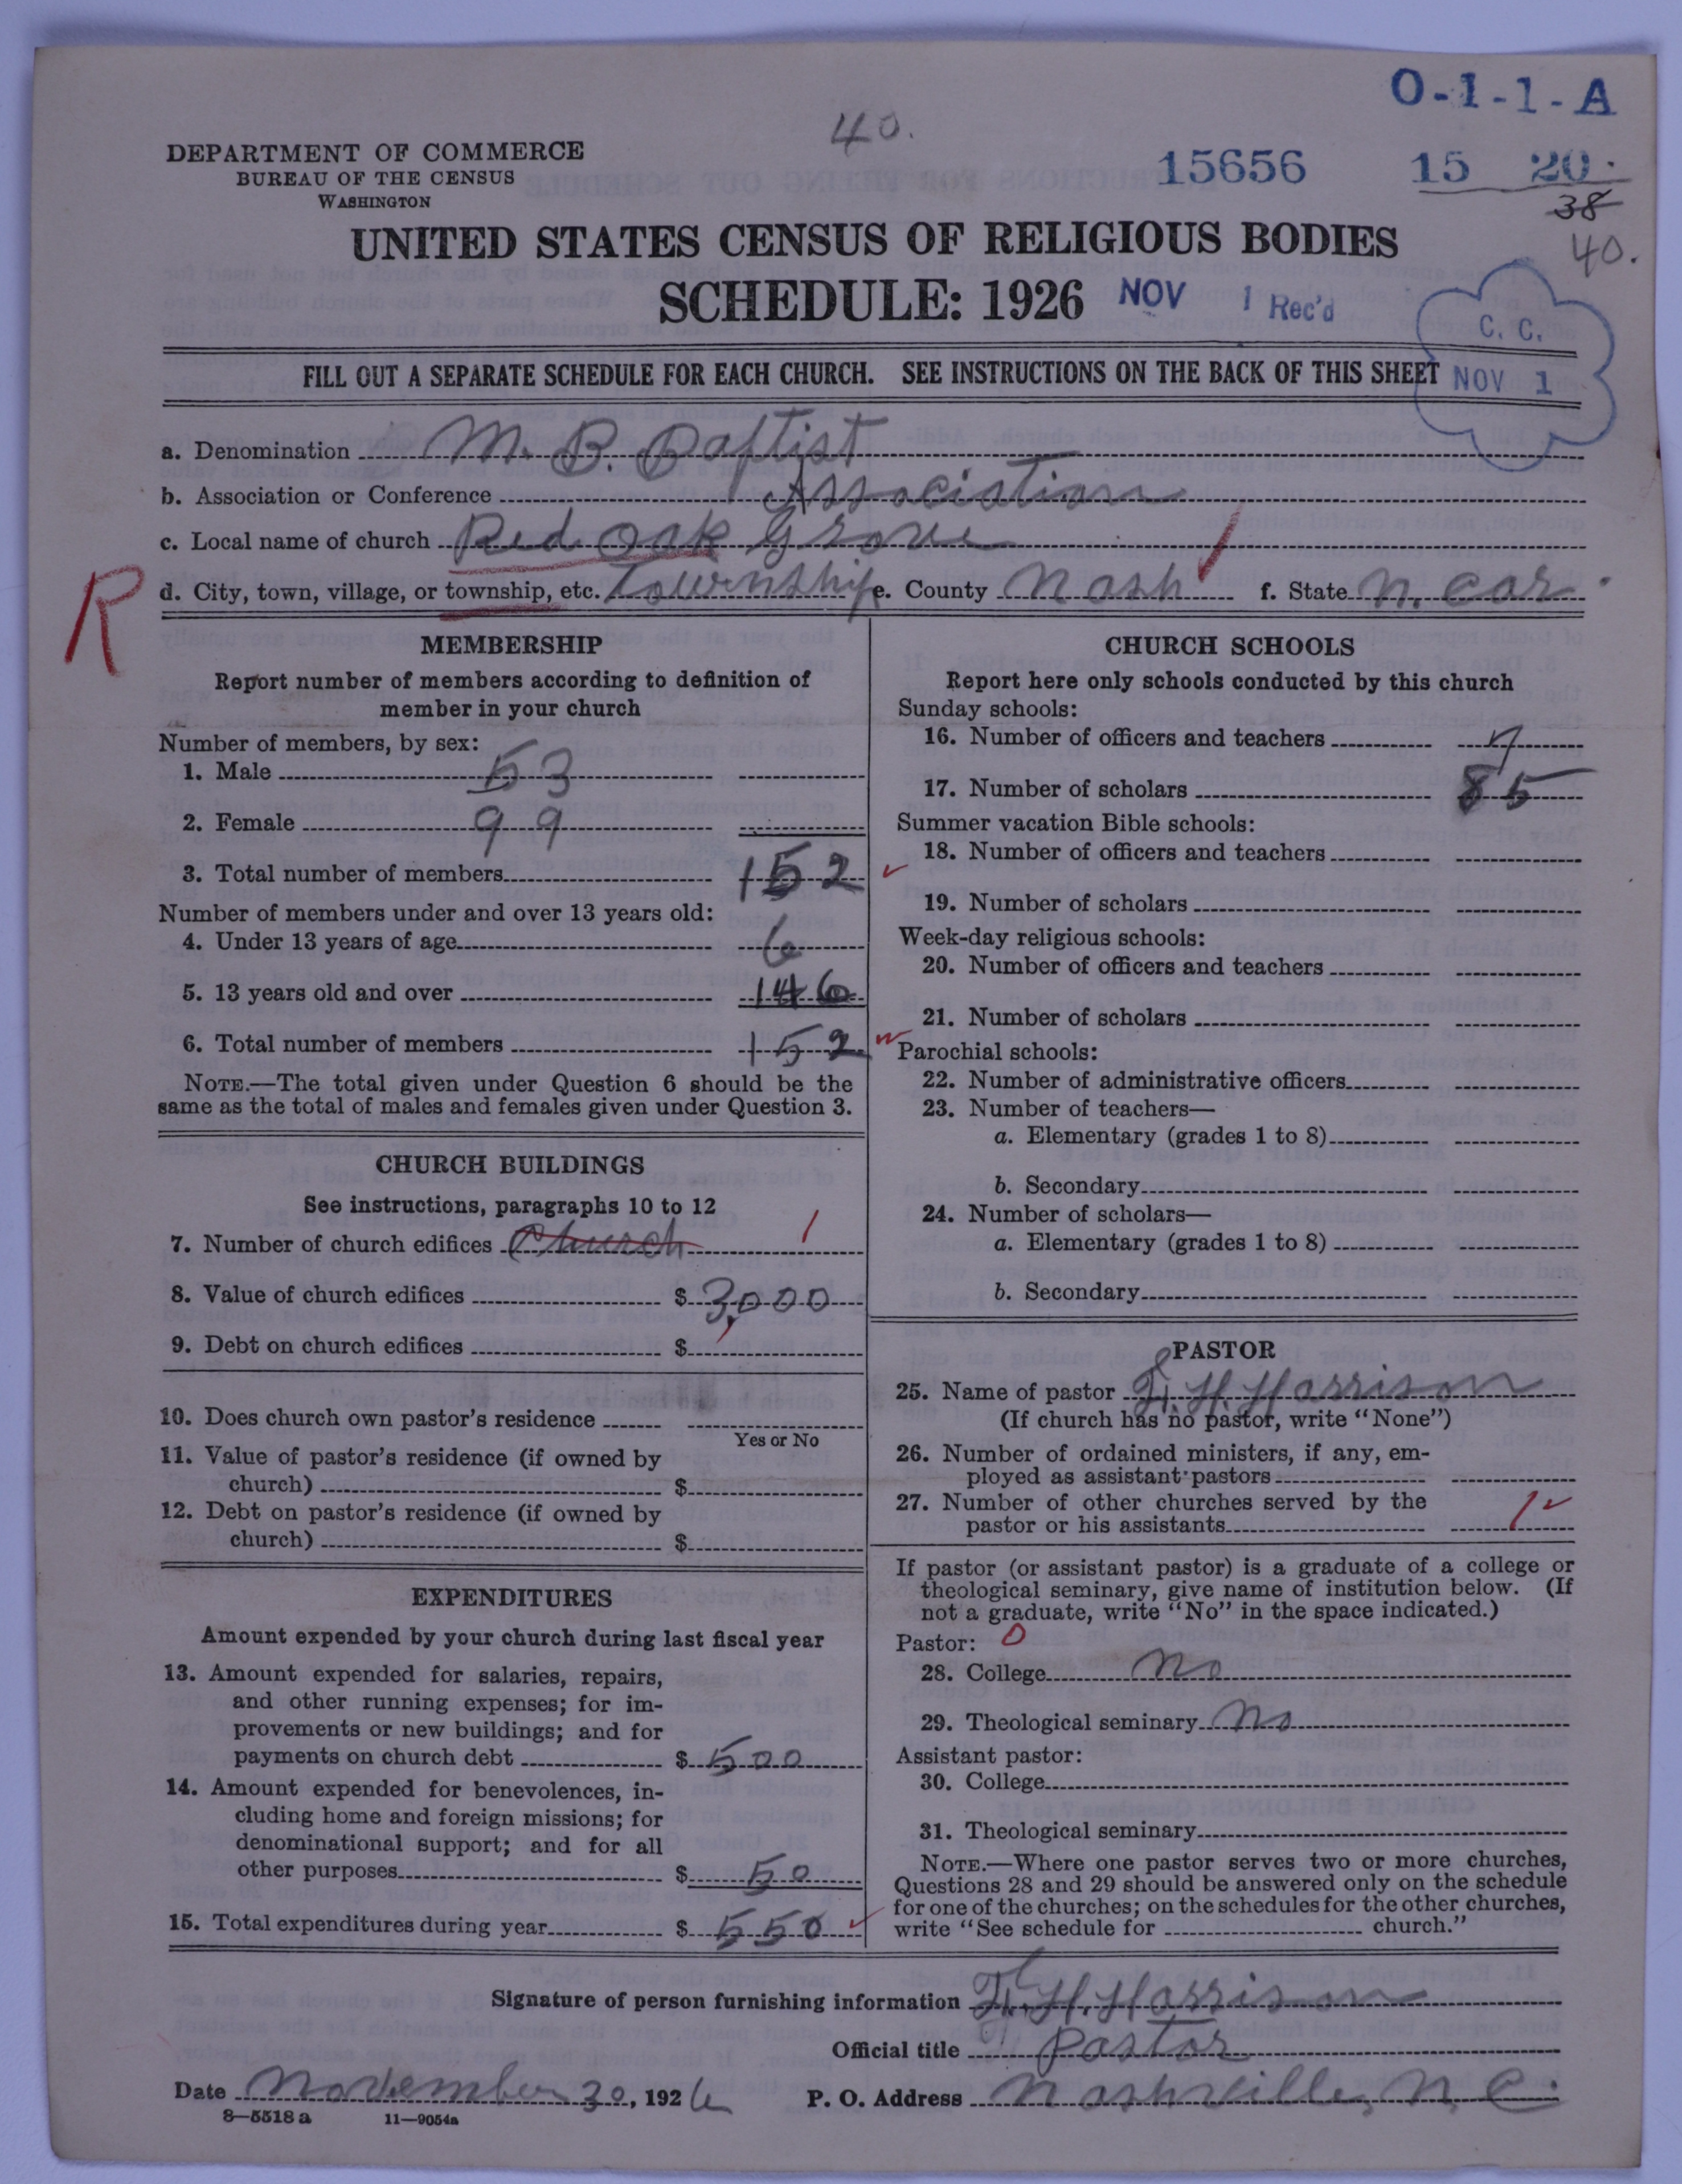 O-1-1-A
40.
DEPARTMENT OF COMMERCE
BUREAU OF THE CENSUS
WASHINGTON
15656 15 20
38
40.
UNITED STATES CENSUS OF RELIGIOUS BODIES
SCHEDULE: 1926 NOV 1 Rec'd
C. C.
NOV 1
FILL OUT A SEPARATE SCHEDULE FOR EACH CHURCH. SEE INSTRUCTIONS ON THE BACK OF THIS SHEET
a. Denomination M. B. Baptist
b. Association or Conference Association
c. Local name of church Red Oak Grove
R d. City, town, village, or township, etc. Township e. County Nash f. State N. Car.
MEMBERSHIP
Report number of members according to definition of
member in your church
Number of members, by sex:
1. Male 53
2. Female 99
3. Total number of members 152
Number of members under and over 13 years old:
4. Under 13 years of age 6
5. 13 years old and over 146
6. Total number of members 152
NOTE.—The total given under Question 6 should be the
same as the total of males and females given under Question 3.
CHURCH BUILDINGS
See instructions, paragraphs 10 to 12
7. Number of church edifices Church 1
8. Value of church edifices $ 3,000
9. Debt on church edifices $
10. Does church own pastor's residence
Yes or No
11. Value of pastor's residence (if owned by
church) $
12. Debt on pastor's residence (if owned by
church) $
EXPENDITURES
Amount expended by your church during last fiscal year
13. Amount expended for salaries, repairs,
and other running expenses; for im-
provements or new buildings; and for
payments on church debt $ 500
14. Amount expended for benevolences, in-
cluding home and foreign missions; for
denominational support; and for all
other purposes $ 50
15. Total expenditures during year $ 550
CHURCH SCHOOLS
Report here only schools conducted by this church
Sunday schools:
16. Number of officers and teachers 7
17. Number of scholars 85
Summer vacation Bible schools:
18. Number of officers and teachers
19. Number of scholars
Week-day religious schools:
20. Number of officers and teachers
21. Number of scholars
Parochial schools:
22. Number of administrative officers
23. Number of teachers—
a. Elementary (grades 1 to 8)
b. Secondary
24. Number of scholars—
a. Elementary (grades 1 to 8)
b. Secondary
PASTOR
25. Name of pastor F. H. Harrison
(If church has no pastor, write "None")
26. Number of ordained ministers, if any, em-
ployed as assistant pastors
27. Number of other churches served by the
pastor or his assistants 1
If pastor (or assistant pastor) is a graduate of a college or
theological seminary, give name of institution below. (If
not a graduate, write "No" in the space indicated.)
Pastor: 0
28. College No
29. Theological seminary No
Assistant pastor:
30. College
31. Theological seminary
NOTE.—Where one pastor serves two or more churches,
Questions 28 and 29 should be answered only on the schedule
for one of the churches; on the schedules for the other churches,
write "See schedule for church."
Signature of person furnishing information F. H. Harrison
Official title Pastor
Date November 30, 1926 P. O. Address Nashville, N. C.
8—5518 a 11—9054a